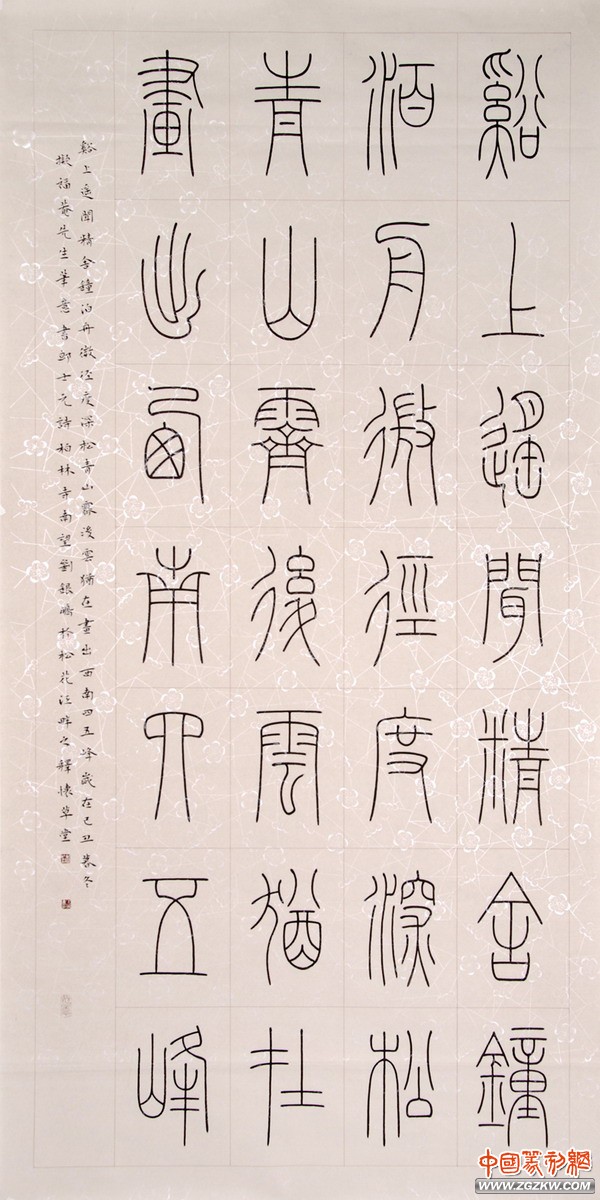 谿上遥聞精舍鐘
泊舟微徑度深松
青山霽後雲猶在
畫出西南四五峰
谿上遥聞精舍鐘泊舟微徑度深松青山霽後雲猶在畫出西南四五峰歲在己丑暮冬
擬福菴先生筆意書郎士元詩柏林寺南望劉銀鵬於松花江畔之釋懷草堂
中國篆刻網
www.ZGZKW.com